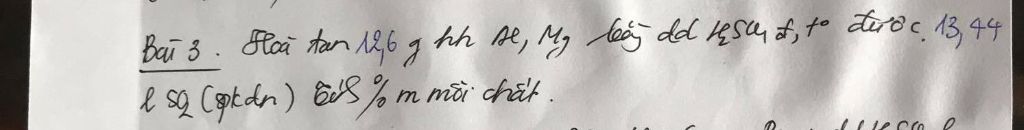 Bài 3. Hoà tan 12,6 g hh Al, Mg bằng dd H₂SO₄ đ, t° được 13,44
l SO₂ (đktc) Tính % m mỗi chất.